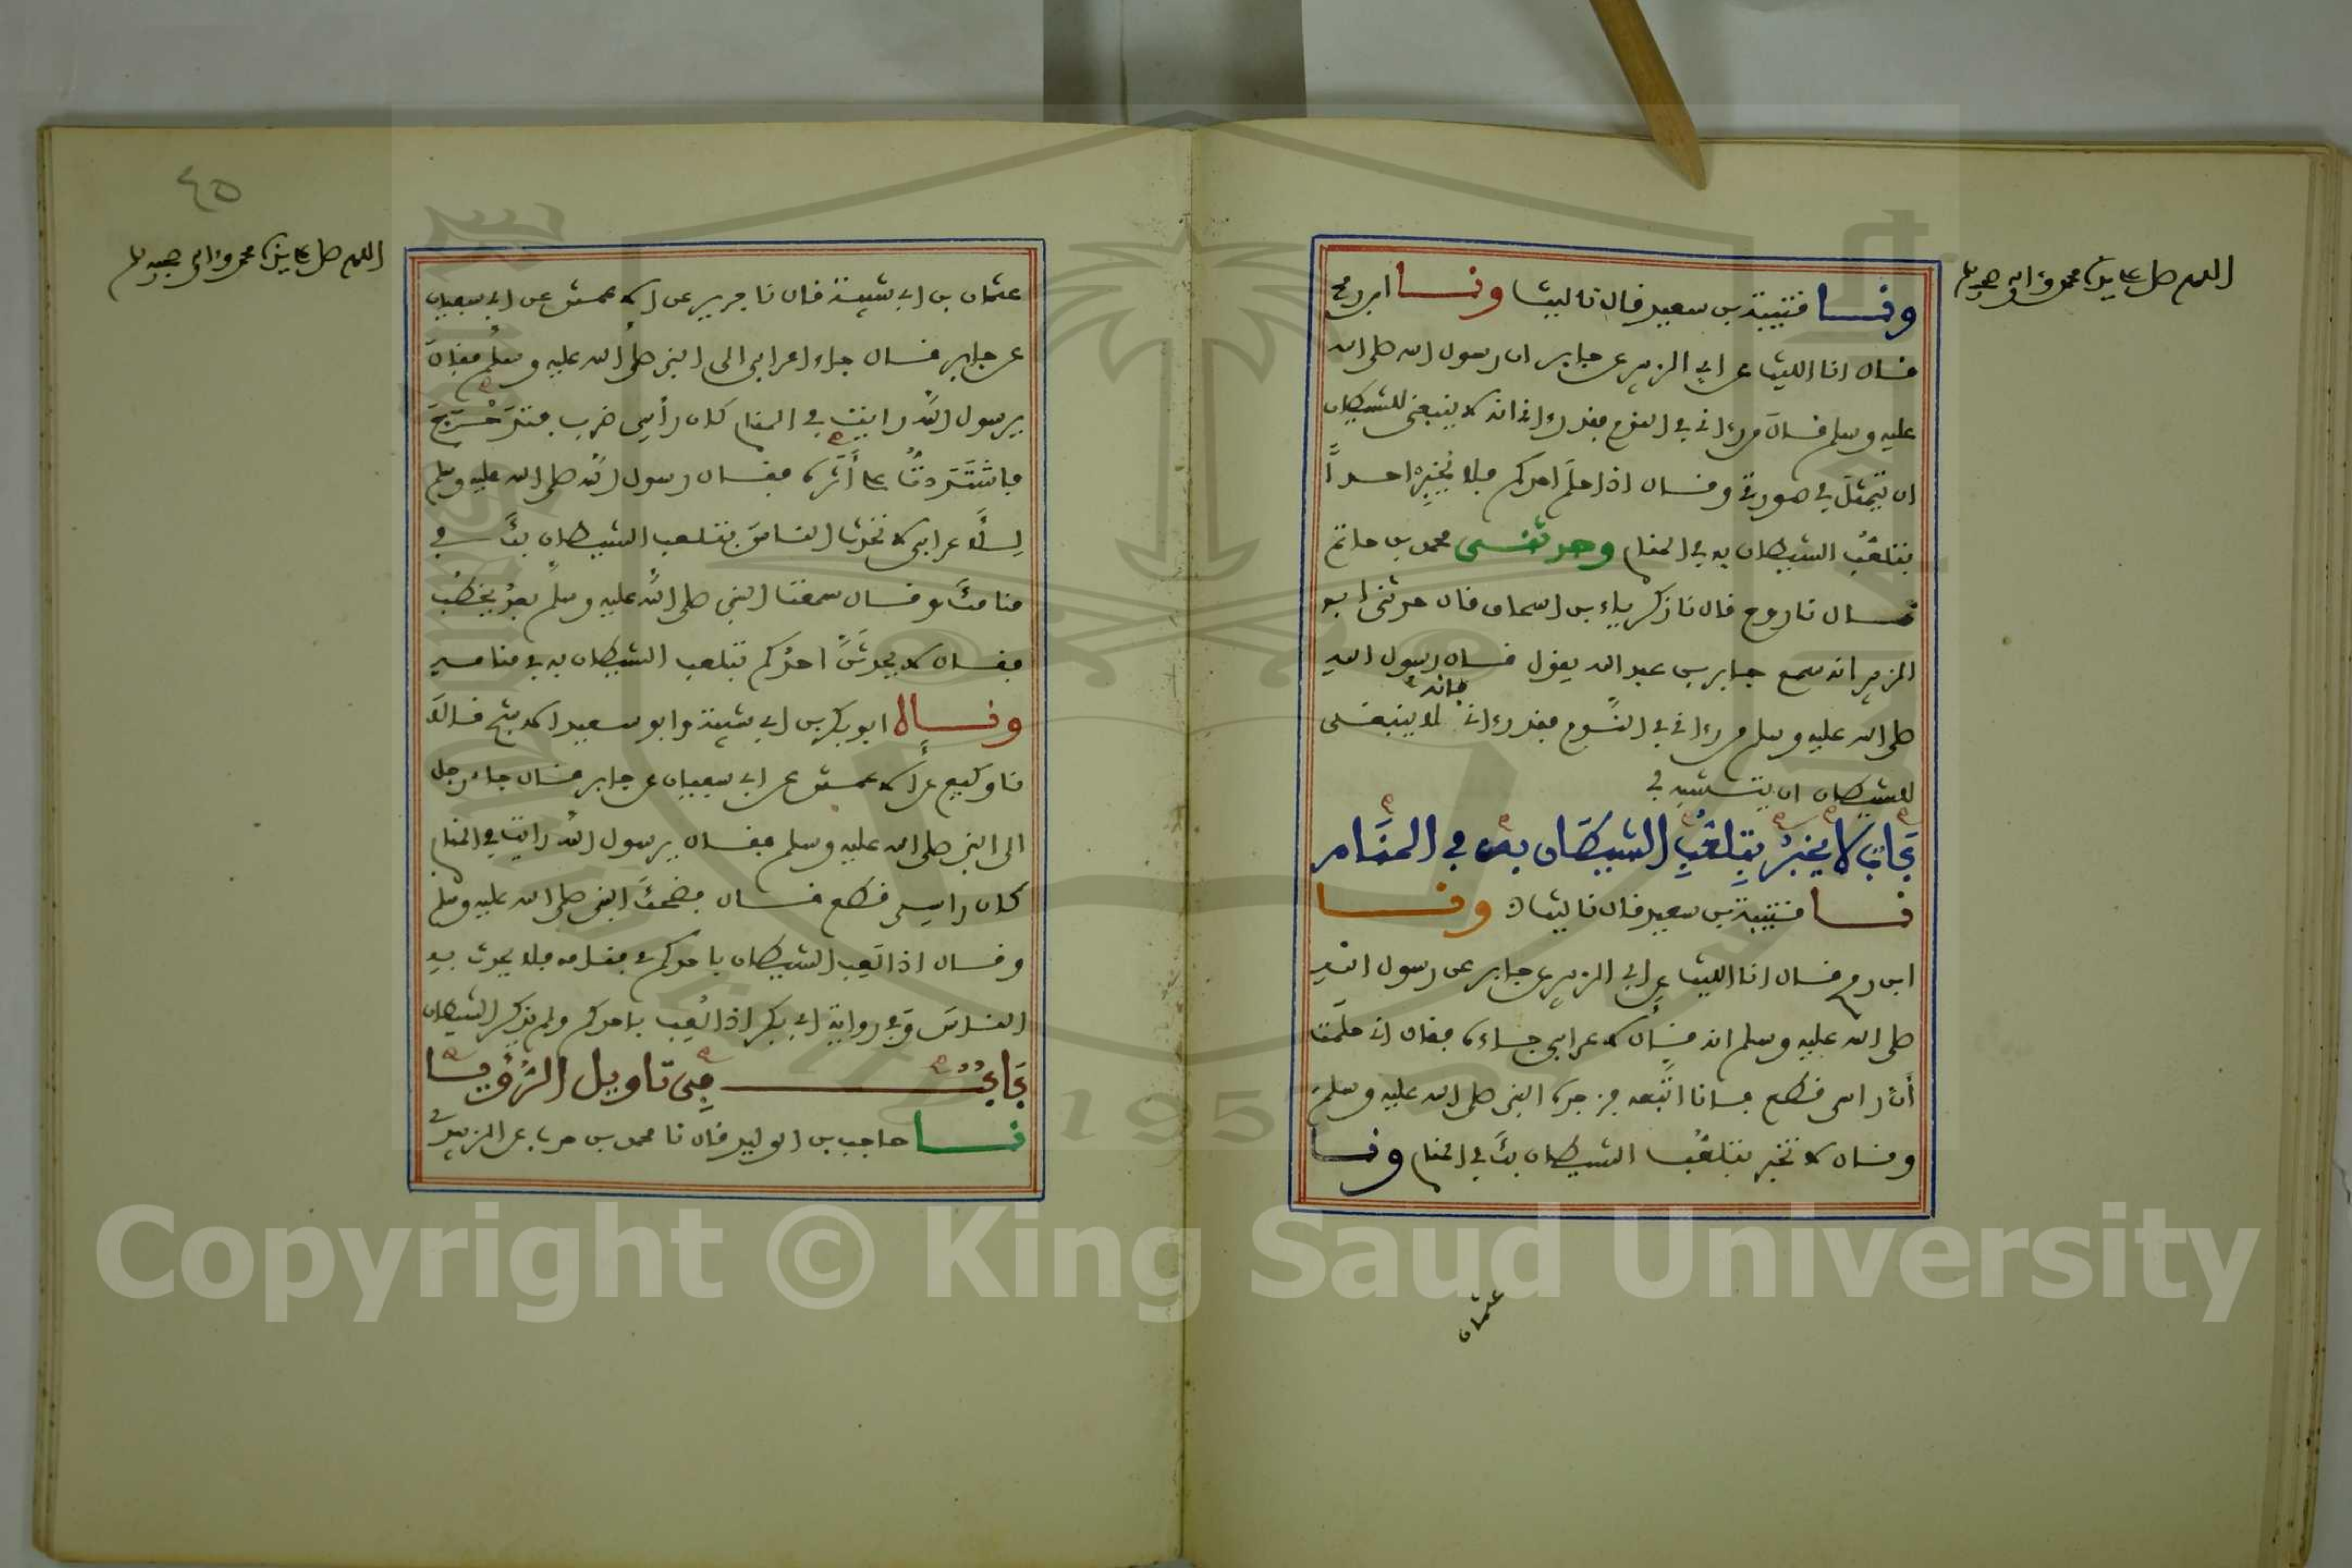 اللهم صل على سيدنا محمد وءاله وصحبه وسلم
ونا قتيبة بن سعيد قال نا ليث ونا ابن رمح
قال انا الليث عن ابي الزبير عن جابر ان رسول الله صلى الله
عليه وسلم قال من رءاني في النوم فقد رءاني انه لا ينبغي للشيطان
ان يتمثل في صورتي وقال اذا حلم احدكم فلا يخبر احدا
بتلعب الشيطان به في المنام وحدثنى محمد بن حاتم
قال نا روح قال نا زكرياء بن اسحاق قال حدثني ابو
الزبير انه سمع جابر بن عبد الله يقول قال رسول الله
صلى الله عليه وسلم من رءاني في النوم فقد رءاني فانه لا ينبغي
للشيطان ان يتشبه في
باب لا يخبر بتلعب الشيطان به في المنام
نا قتيبة بن سعيد قال نا ليث ونا
ابن رمح قال انا الليث عن ابي الزبير عن جابر عن رسول الله
صلى الله عليه وسلم انه قال لاعرابي جاءه فقال اني حلمت
أن راسي قطع فانا اتبعه فزجره النبي صلى الله عليه وسلم
وقال لا تخبر بتلعب الشيطان بك في المنام ونا
عثمان
٤٥
اللهم صل على سيدنا محمد وءاله وصحبه وسلم
عثمان بن ابي شيبة قال نا جرير عن الاعمش عن ابي سفيان
عن جابر قال جاء اعرابي الى النبي صلى الله عليه وسلم فقال
يرسول الله رايت في المنام كان رأسي ضرب فتدحرج
فاشتددت على أثره فقال رسول الله صلى الله عليه وسلم
للأعرابي لا تحدث الناس بتلعب الشيطان بك في
منامك وقال سمعت النبي صلى الله عليه وسلم بعد يخطب
فقال لا يحدثن احدكم بتلعب الشيطان به في منامه
ونا ابو بكر بن ابي شيبة وابو سعيد الاشج قالا
نا وكيع عن الاعمش عن ابي سفيان عن جابر قال جاء رجل
الى النبي صلى الله عليه وسلم فقال يرسول الله رايت في المنام
كان راسي قطع قال فضحك النبي صلى الله عليه وسلم
وقال اذا لعب الشيطان باحدكم في منامه فلا يحدث به
الناس وفي رواية ابي بكر اذا لعب باحدكم ولم يذكر الشيطان
باب في تاويل الرؤيا
نا حاجب بن الوليد قال نا محمد بن حرب عن الزبيدي
Copyright © King Saud University
1957